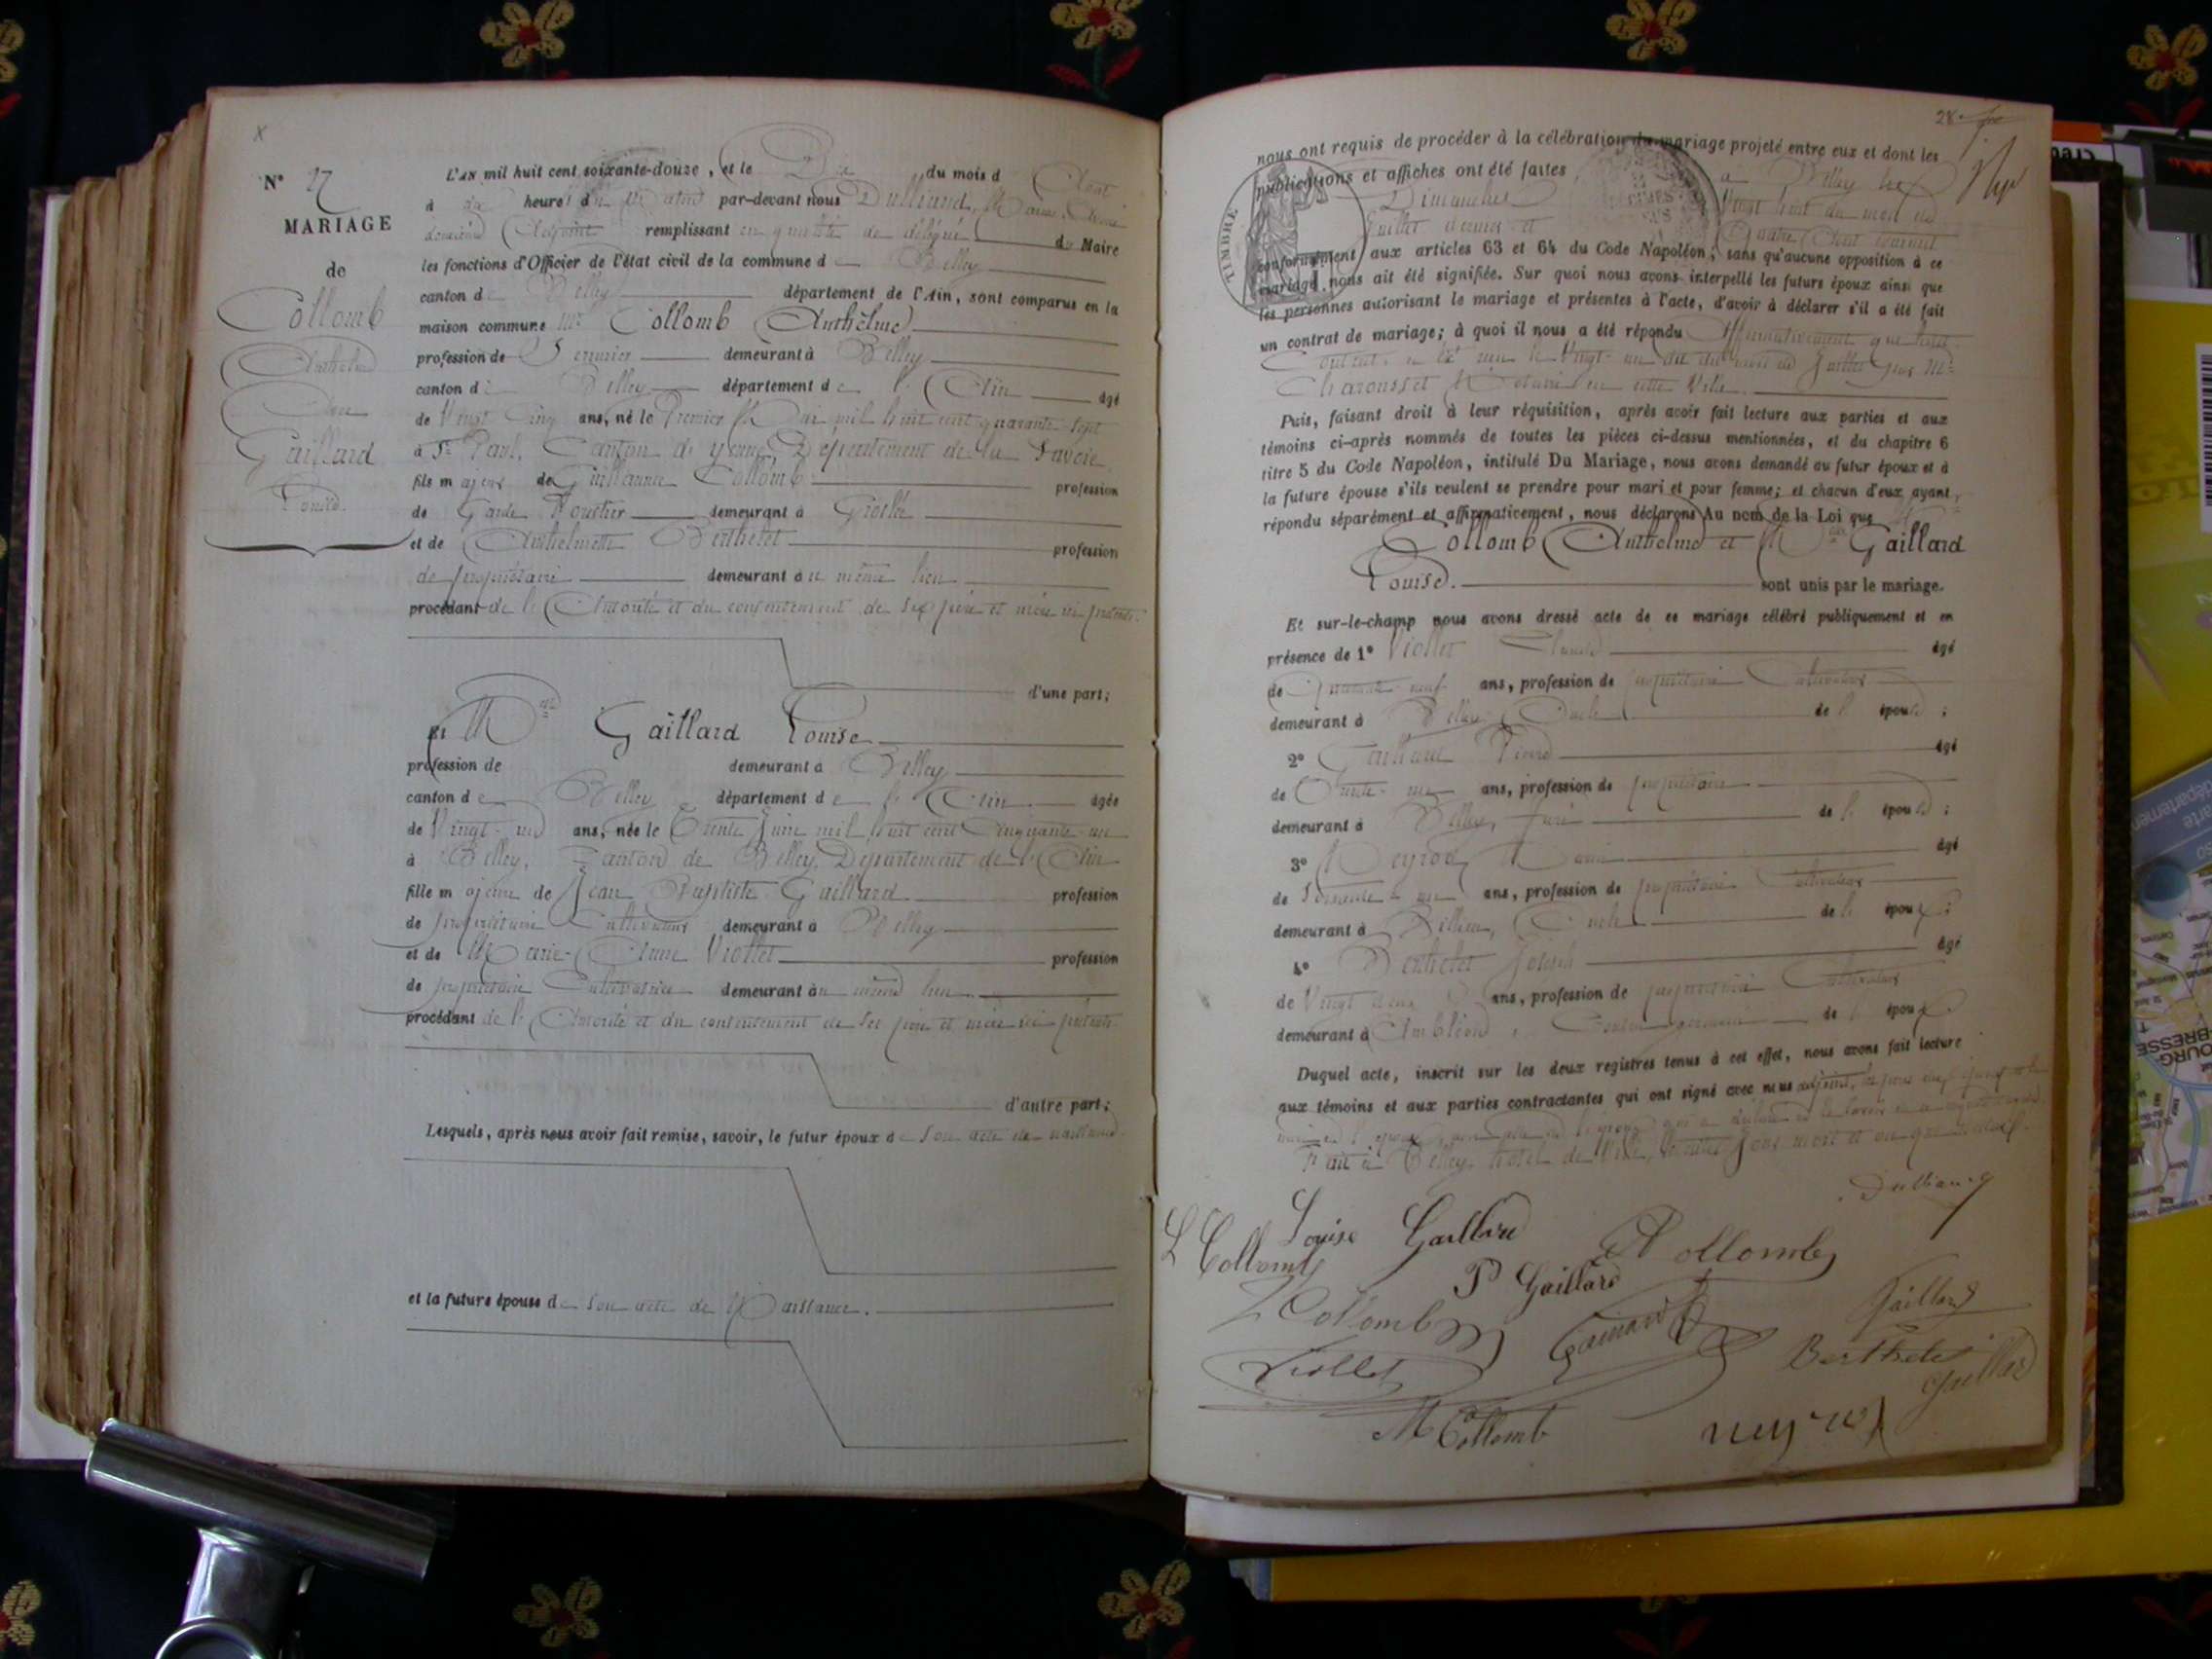 N° 27
MARIAGE
de
Collomb
Anthelme
Gaillard
Louise
L'AN mil huit cent soixante-douze, et le Dix du mois d' Août
à dix heures du Matin par-devant nous Dulliand, Maire,
Adjoint remplissant en qualité de délégué du Maire
les fonctions d'Officier de l'état civil de la commune de Belley
canton de Belley département de l'Ain, sont comparus en la
maison commune Mr Collomb Anthelme
profession de Serrurier demeurant à Belley
canton de Belley département de l'Ain âgé
de Vingt Cinq ans, né le Premier Mai mil huit cent quarante sept
à St Paul, Canton de Yenne, Département de la Savoie
fils majeur de Guillaume Collomb profession
de Garde Forestier demeurant à Groslée
et de Anthelmette Berthelet profession
de propriétaire demeurant au même lieu
procédant de l'Autorité et du consentement de ses père et mère ici présents
d'une part;
Et Mlle Gaillard Louise
profession de demeurant à Belley
canton de Belley département de l'Ain âgée
de Vingt-un ans, née le Trente Juin mil huit cent Cinquante-un
à Belley, Canton de Belley, Département de l'Ain
fille majeure de Jean Baptiste Gaillard profession
de propriétaire Cultivateur demeurant à Belley
et de Marie-Anne Viollet profession
de propriétaire Cultivatrice demeurant au même lieu
procédant de l'Autorité et du consentement de ses père et mère ici présents
d'autre part;
Lesquels, après nous avoir fait remise, savoir, le futur époux de son acte de naissance.
et la future épouse de son acte de Naissance.
28
nous ont requis de procéder à la célébration du mariage projeté entre eux et dont les
publications et affiches ont été faites à Belley les
Dimanches Vingt huit du mois de
Juillet dernier et Quatre Août courant
TIMBRE
conformément aux articles 63 et 64 du Code Napoléon, sans qu'aucune opposition à ce
mariage nous ait été signifiée. Sur quoi nous avons interpellé les futurs époux ainsi que
les personnes autorisant le mariage et présentes à l'acte, d'avoir à déclarer s'il a été fait
un contrat de mariage; à quoi il nous a été répondu Affirmativement que leur
contrat a été reçu le Vingt-un du mois de Juillet par Me
Charousset Notaire en cette Ville.
Puis, faisant droit à leur réquisition, après avoir fait lecture aux parties et aux
témoins ci-après nommés de toutes les pièces ci-dessus mentionnées, et du chapitre 6
titre 5 du Code Napoléon, intitulé Du Mariage, nous avons demandé au futur époux et à
la future épouse s'ils veulent se prendre pour mari et pour femme; et chacun d'eux ayant
répondu séparément et affirmativement, nous déclarons Au nom de la Loi que
Collomb Anthelme et Mlle Gaillard
Louise. sont unis par le mariage.
Et sur-le-champ nous avons dressé acte de ce mariage célébré publiquement et en
présence de 1° Viollet Claude âgé
de Quarante-neuf ans, profession de propriétaire Cultivateur
demeurant à Belley, Oncle de l'épouse;
2° Gaillard Pierre âgé
de Trente-un ans, profession de propriétaire
demeurant à Belley, frère de l'épouse;
3° Neyrod âgé
de Soixante un ans, profession de propriétaire Cultivateur
demeurant à Billieu, Oncle de l'époux;
4° Berthelet Joseph âgé
de Vingt deux ans, profession de propriétaire Cultivateur
demeurant à Ambléon, Cousin germain de l'époux
Duquel acte, inscrit sur les deux registres tenus à cet effet, nous avons fait lecture
aux témoins et aux parties contractantes qui ont signé avec nous adjoint,
Fait à Belley, hôtel de Ville, les mêmes jour mois et an que dessus.
Dulliand
Louise Gaillard
L Collomb
A Collomb
P Gaillard
Collomb
Gaillard
Viollet
Berthelet
Gaillard
M Collomb
neyrod